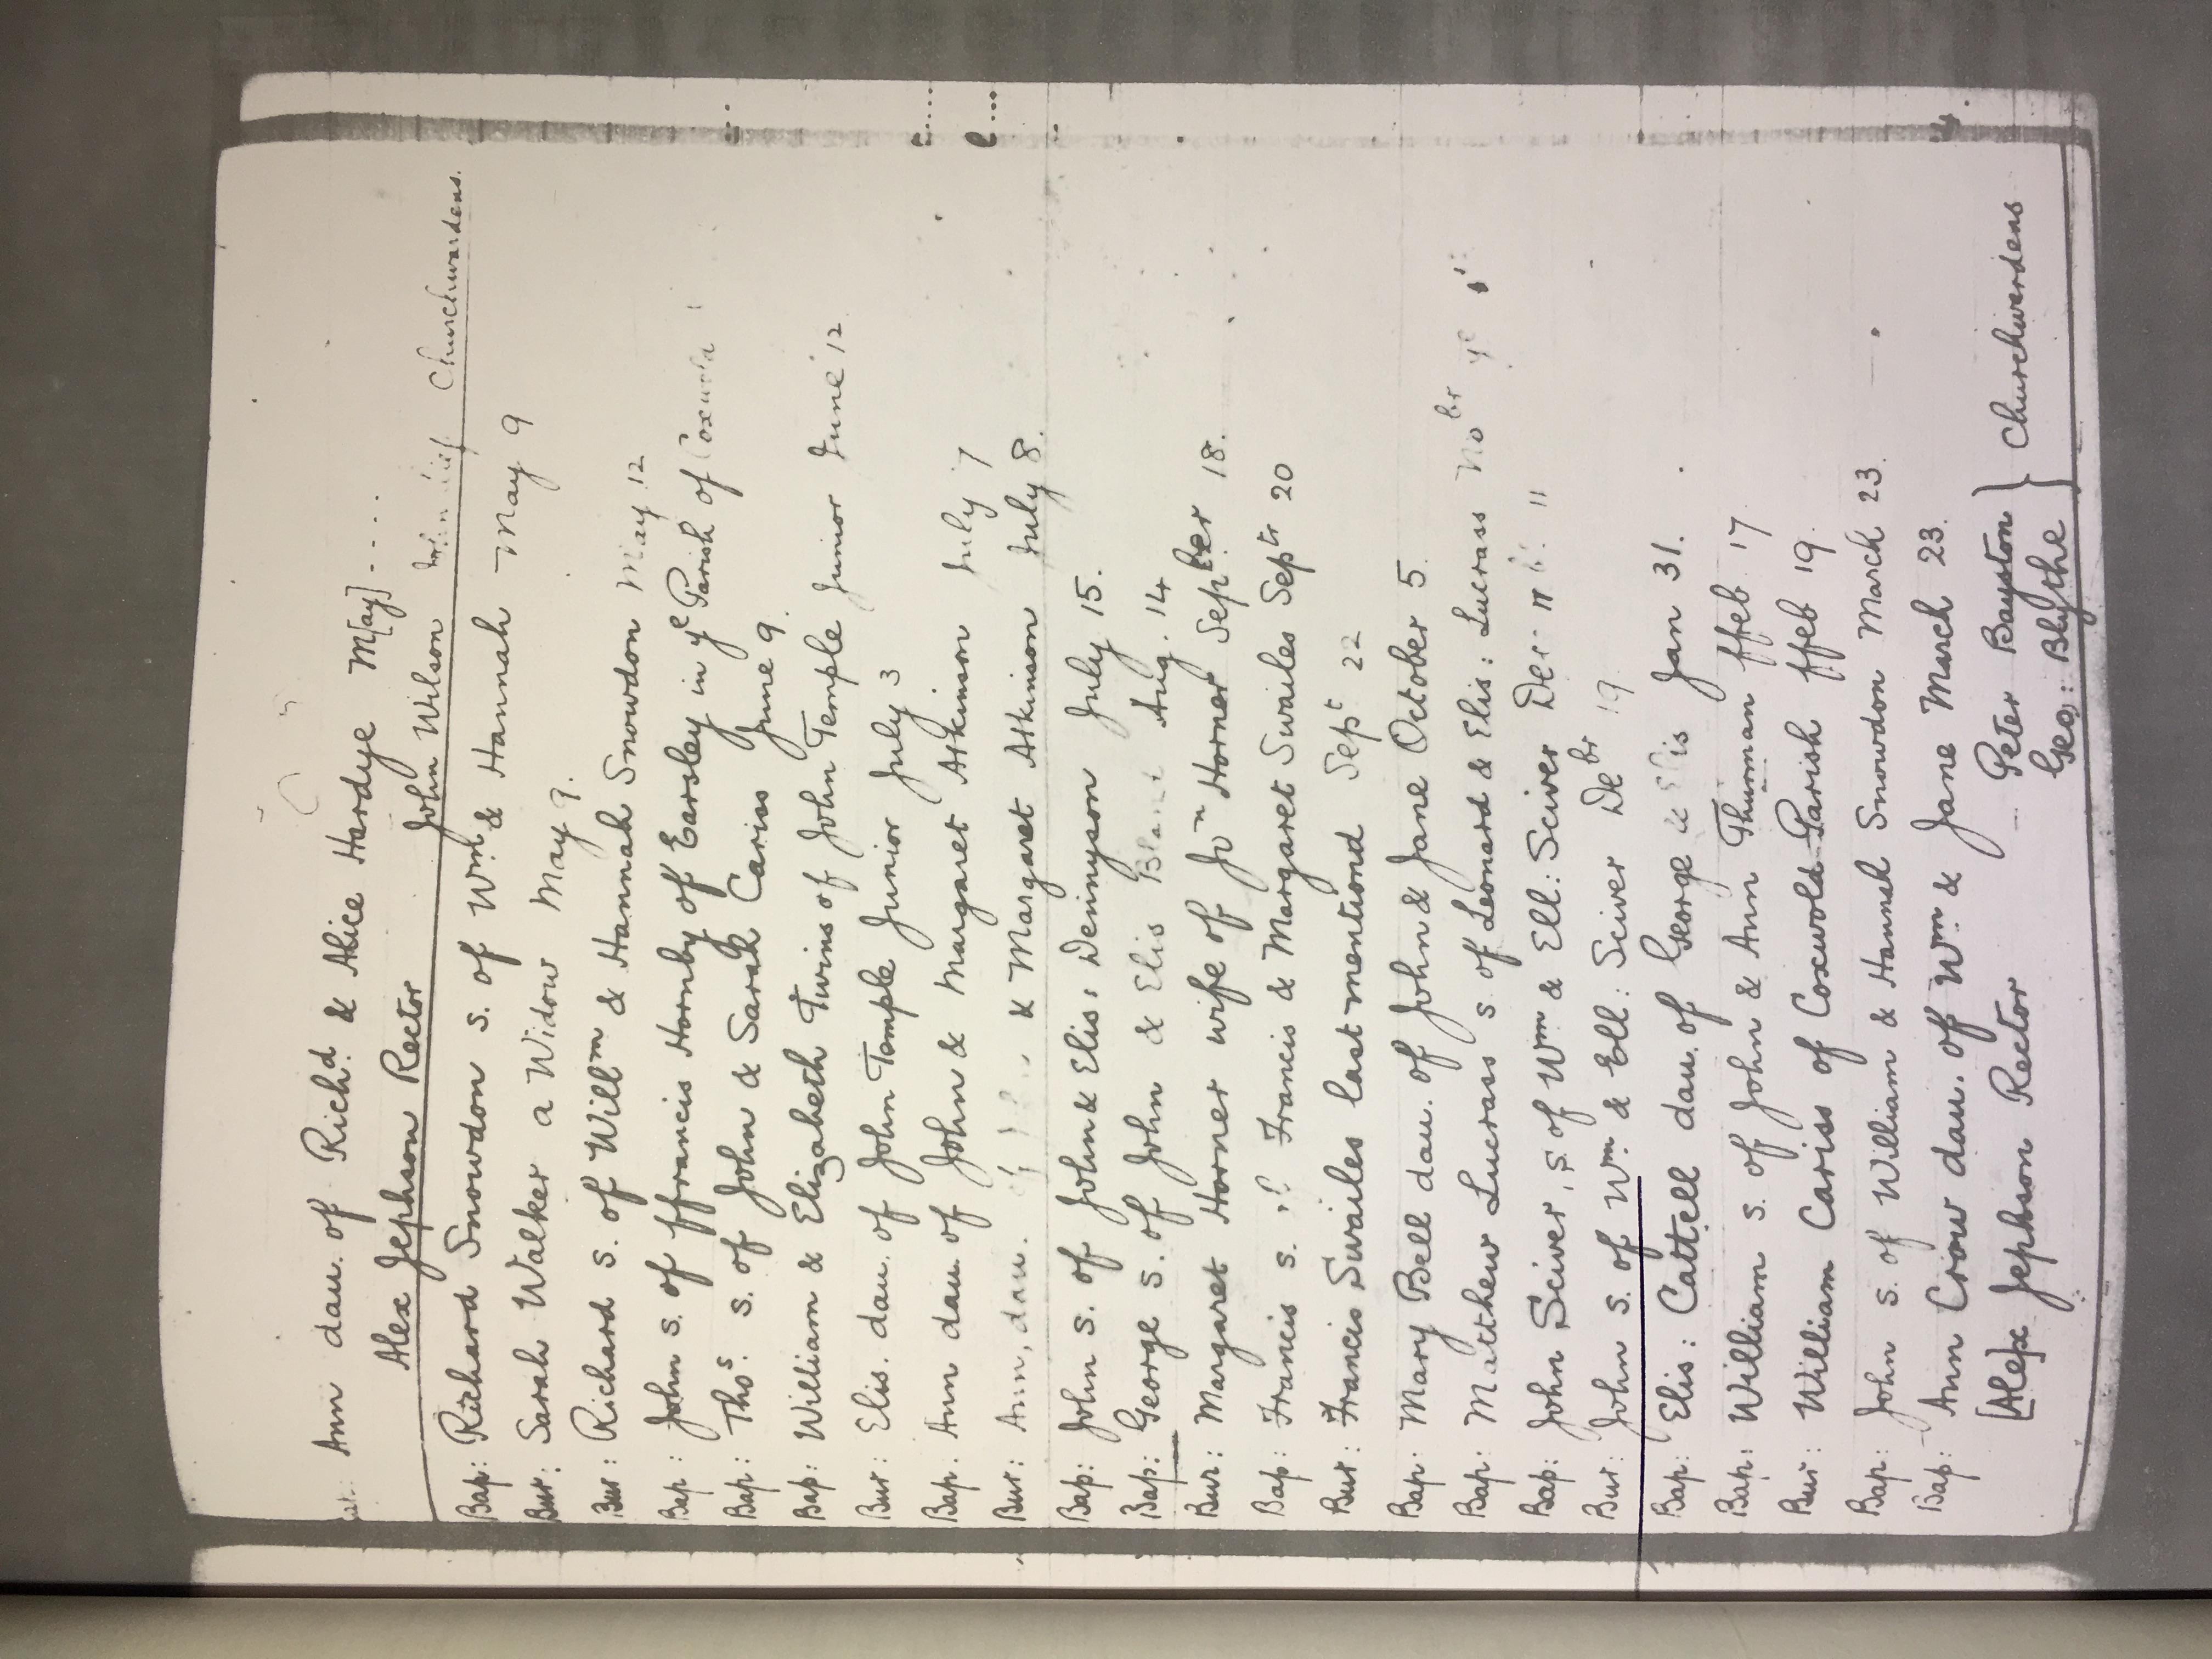 Bap: Ann dau. of Richd. & Alice Hardye M[ay] ....
Alex Jephson Rector John Wilson Churchwardens.
Bap: Richard Snowdon s. of Wm. & Hannah May 9
Bur: Sarah Walker a Widow May 9.
Bur: Richard s. of Willm & Hannah Snowdon May 12
Bap: John s. of ffrancis Hornby of Earsley in ye Parish of Coxwold
Bap: Thos. s. of John & Sarah Cariss June 9.
Bap: William & Elizabeth Twins of John Temple Junior June 12
Bur: Elis. dau. of John Temple Junior July 3
Bap: Ann dau. of John & Margaret Atkinson July 7
Bur: Ann, dau. of John & Margaret Atkinson July 8.
Bap: John s. of John & Elis: Dennyson July 15.
Bap: George s. of John & Elis Bland Aug. 14
Bur: Margaret Horner wife of Jon Horner September 18.
Bap: Francis s. of Francis & Margaret Swailes Septr 20
Bur: Francis Swailes last mentiond Sept 22
Bap: Mary Bell dau. of John & Jane October 5.
Bap: Matthew Lucrass s. of Leonard & Elis: Lucrass Nobr ye
Bap: John Sciver, s. of Wm & Ell: Sciver De
Bur: John s. of Wm. & Ell: Sciver Debr 19.
Bap: Elis: Cattell dau. of George & Elis Jan 31.
Bap: William s. of John & Ann Thurman ffeb 17
Bur: William Cariss of Coxwold Parish ffeb 19.
Bap: John s. of William & Hannah Snowdon March 23.
Bap: Ann Crow dau. of Wm. & Jane March 23.
[Alex Jephson Rector Peter Bayston } Churchwardens
Geo: Blythe